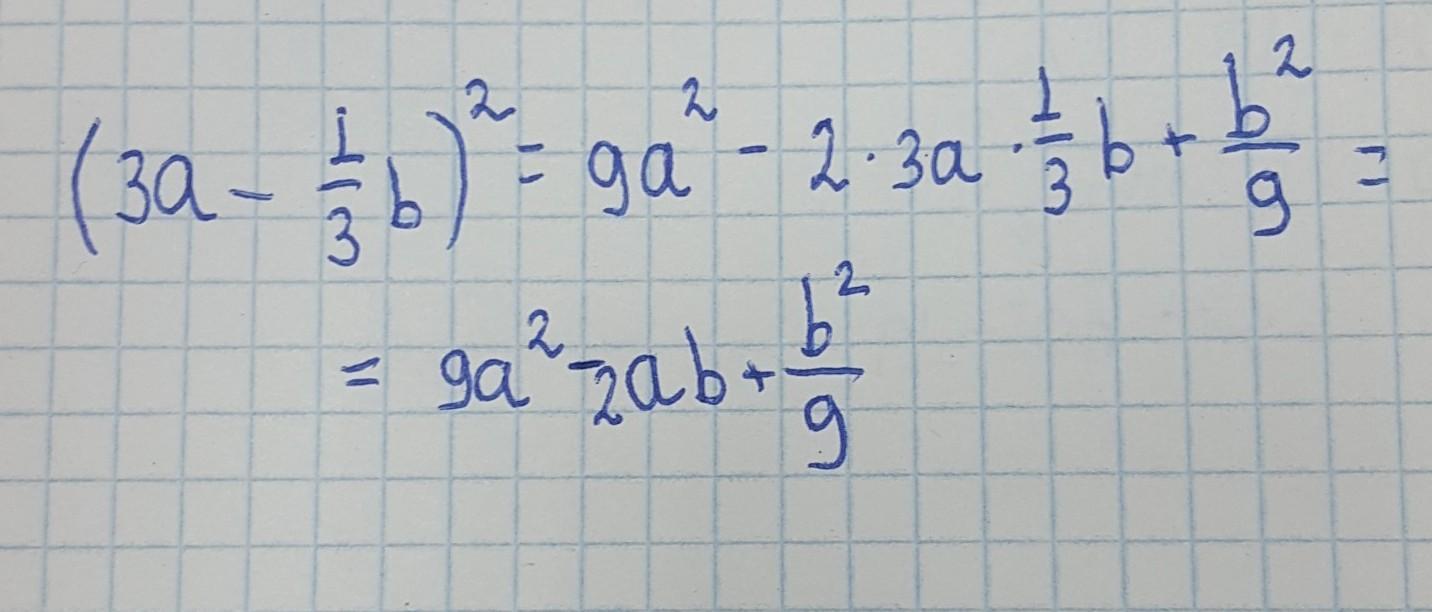 (3a - 1/3 b)² = 9a² - 2·3a·1/3 b + b²/9 =
= 9a² - 2ab + b²/9